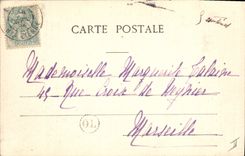 CARTE POSTALE
Mademoiselle Marguerite
45 Rue Croix de Regnier
Marseille
OL